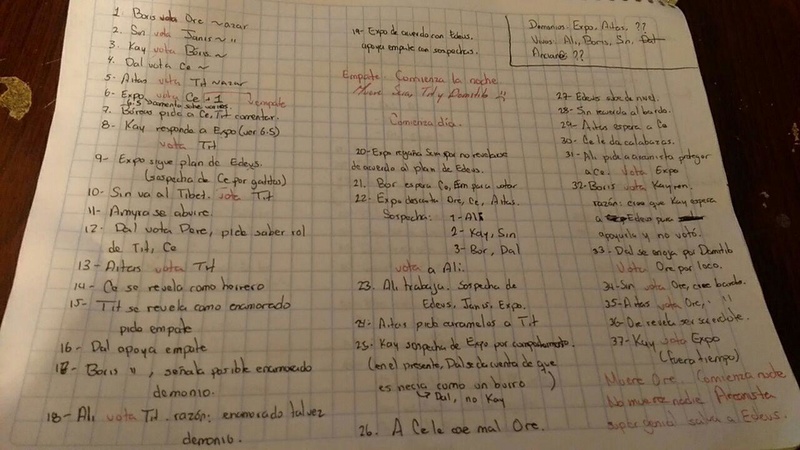 1. Boris vota Ore ~ azar
2. Sin vota Janis ~ "
3. Kay vota Boris ~
4. Dal vota Ce ~
5. Aitas vota Tit ~ azar
6- Expo vota Ce + 1
empate
7. pide a Ce, Tit comentar.
8- Kay responde a Expo (ver 6.5)
vota Tit
9- Expo sigue plan de Edeus.
(sospecha de Ce por gatitos)
10- Sin va al Tibet. vota Tit
11- Amyra se aburre.
12- Dal vota Dore, pide saber rol
de Tit, Ce
13- Aitas vota Tit
14- Ce se revela como herrero
15- Tit se revela como enamorado
pide empate
16- Dal apoya empate
17- Boris ", señala posible enamorado
demonio.
18- Ali vota Tit. razón: enamorado talvez
demonio.
19- Expo de acuerdo con Edeus,
apoya empate con sospechas.
Empate. Comienza la noche
Muere Tit y Domitilo
Comienza día.
20- Expo regaña por no revelarse
de acuerdo al plan de Edeus.
21. Bor espera Ce, para votar
22- Expo descarta Ore, Ce, Aitas.
Sospecha: 1- Ali
2- Kay, Sin
3- Bor, Dal
vota a Ali.
23. Ali trabaja. sospecha de
Edeus, Janis, Expo.
24- Aitas pide caramelos a Tit
25- Kay sospecha de Expo por comportamiento.
(en el presente, Dal se da cuenta de que
es necia como un burro )
↳ Dal, no Kay
26. A Ce le cae mal Ore.
Demonios: Expo, Aitas, ??
Vivos: Ali, Boris, Sin, Dal
Anciano ??
27- Edeus sube de nivel.
28- Sin recuerda al bardo.
29- Aitas espera a Ce
30- Ce le da calabazas.
31- Ali pide a proteger
a Ce. Vota Expo
32- Boris vota Kayren.
razón: cree que Kay espera
a Edeus para
apoyarlo y no votó.
33- Dal se enoja por Domitilo
Vota Ore por loco.
34- Sin vota Ore, cree bardo.
35- Aitas vota Ore, "
36- Ore revela ser sacerdote.
37- Kay vota Expo
(fuera tiempo)
Muere Ore. Comienza noche
No muere nadie.
super genial salva a Edeus.